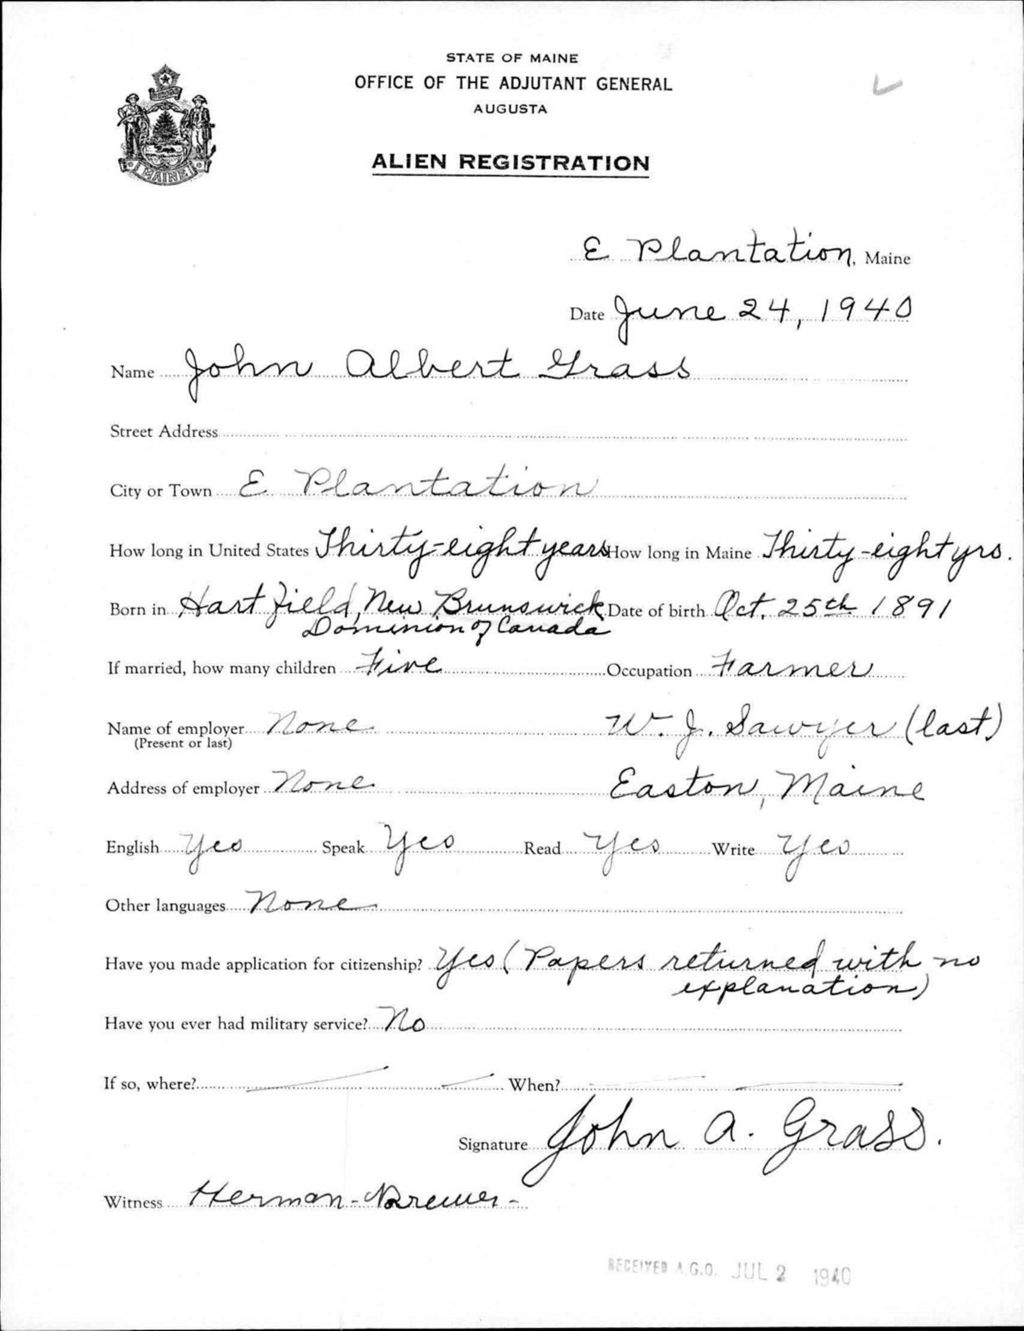 STATE OF MAINE
OFFICE OF THE ADJUTANT GENERAL
AUGUSTA
ALIEN REGISTRATION
MAINE
E Plantation, Maine
Date June 24, 1940
Name John Albert Grass
Street Address
City or Town E Plantation
How long in United States Thirty-eight years How long in Maine Thirty-eight yrs.
Born in Hartfield, New Brunswick Date of birth Oct. 25th 1891
Dominion of Canada
If married, how many children Five Occupation Farmer
Name of employer None W. J. Sawyer (last)
(Present or last)
Address of employer None Easton, Maine
English Yes Speak Yes Read Yes Write Yes
Other languages None
Have you made application for citizenship? Yes (Papers returned with no
explanation)
Have you ever had military service? No
If so, where? When?
Signature John A. Grass.
Witness Herman - Brewer -
RECEIVED A.G.O. JUL 2 1940